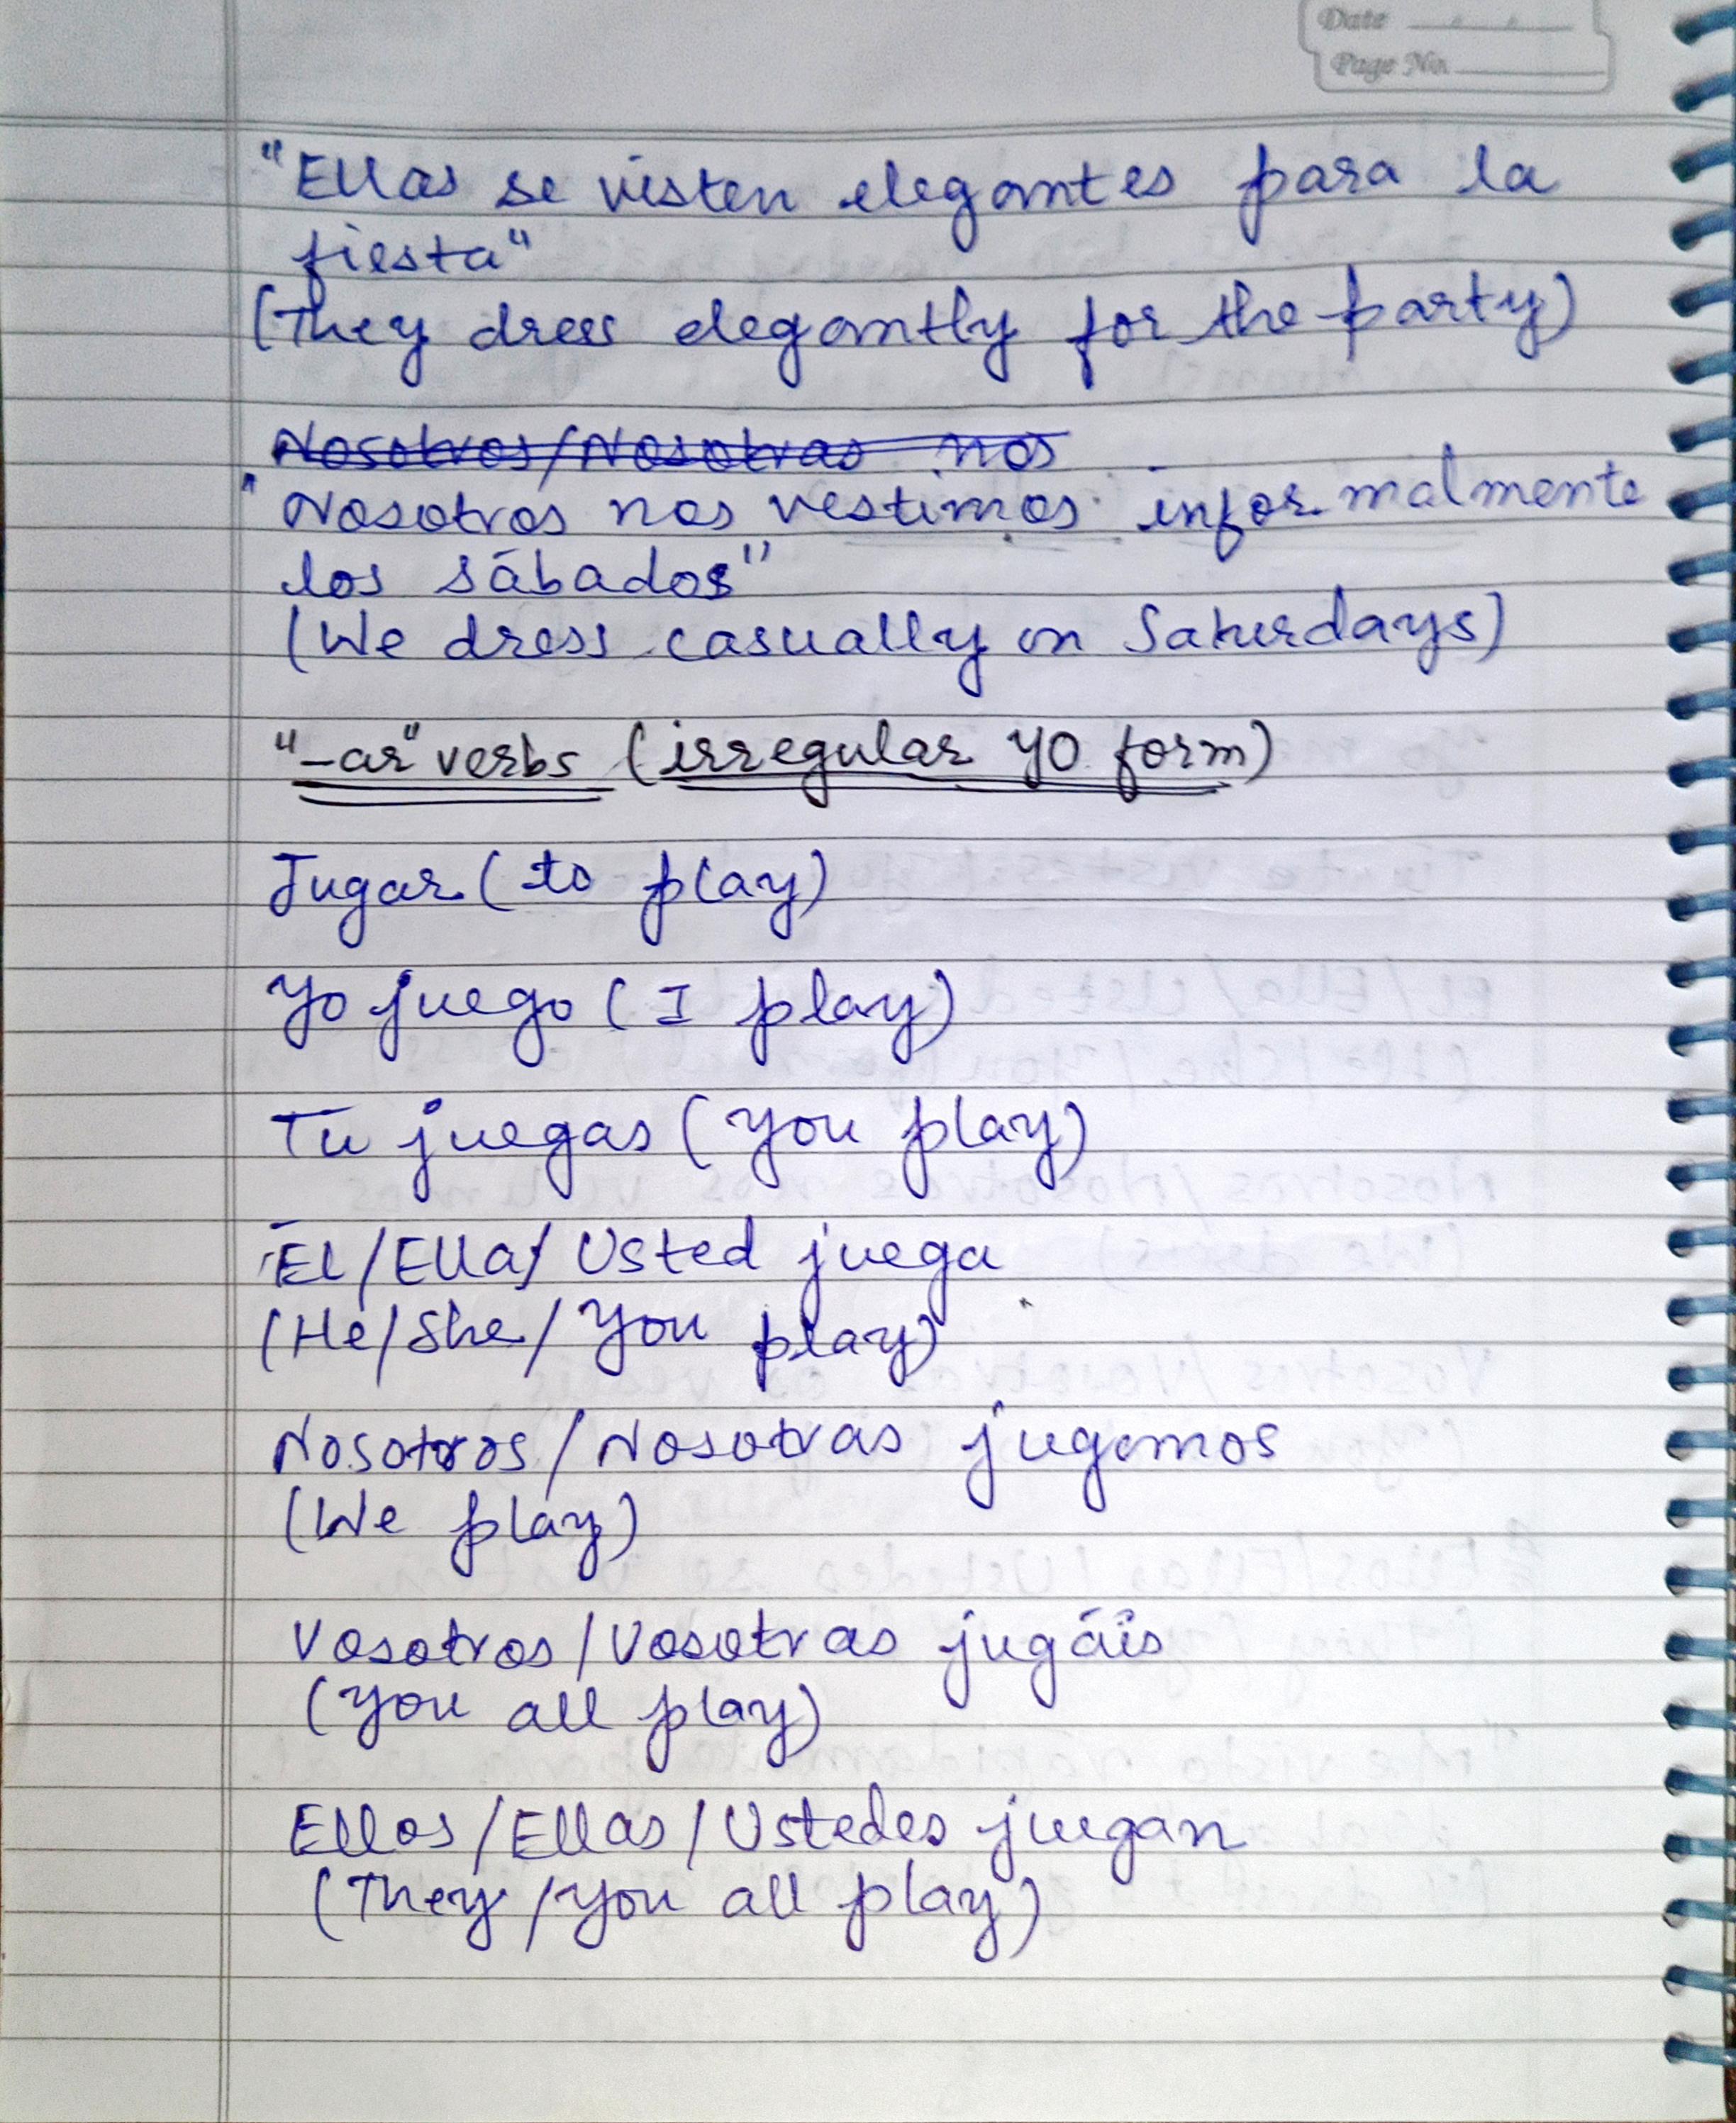 Date
Page No.
"Ellas se visten elegantes para la
fiesta"
(They dress elegantly for the party)
Nosotros/Nosotras nos
"Nosotros nos vestimos informalmente
los sábados"
(We dress casually on Saturdays)
"-ar" verbs (irregular yo form)
Jugar (to play)
Yo juego (I play)
Tú juegas (You play)
Él/Ella/Usted juega
(He/She/You play)
Nosotros/Nosotras jugamos
(We play)
Vosotros/Vosotras jugáis
(You all play)
Ellos/Ellas/Ustedes juegan
(They/you all play)